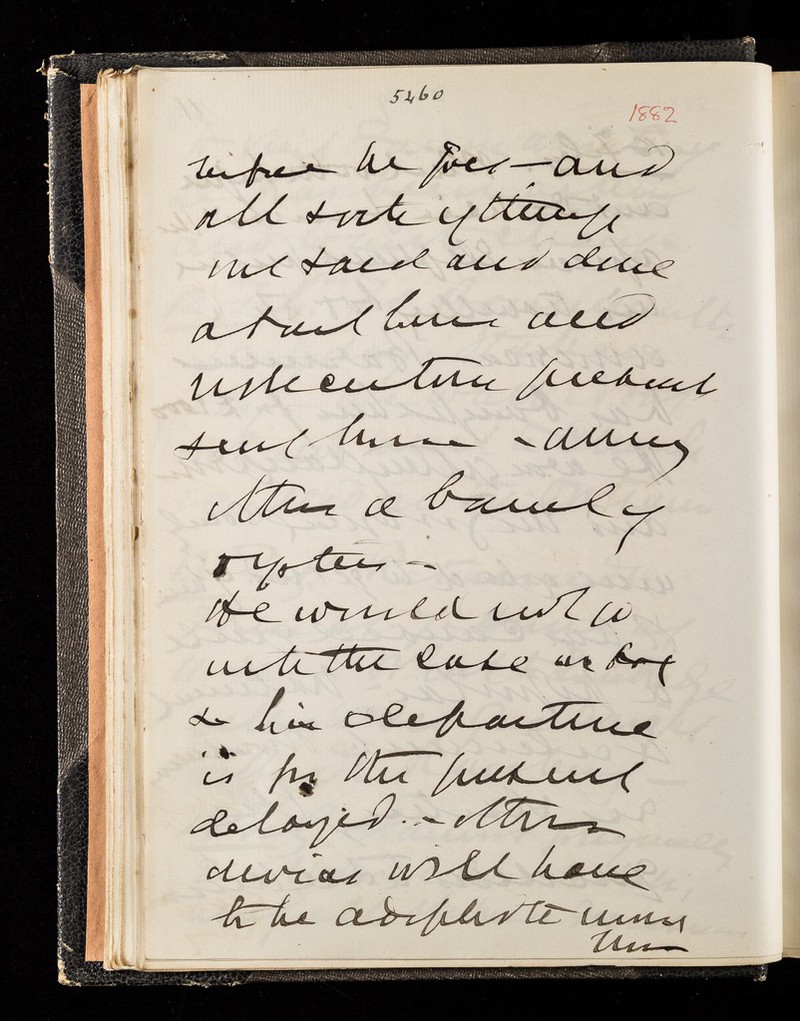 5460
1882
before he goes — and
all sorts of things
are said and done
about him and
presents
sent him - among
others a barrel of
oysters -
He would not go
with the case or box
& his departure
is for the present
delayed. - other
devices will have
to be adopted to
him